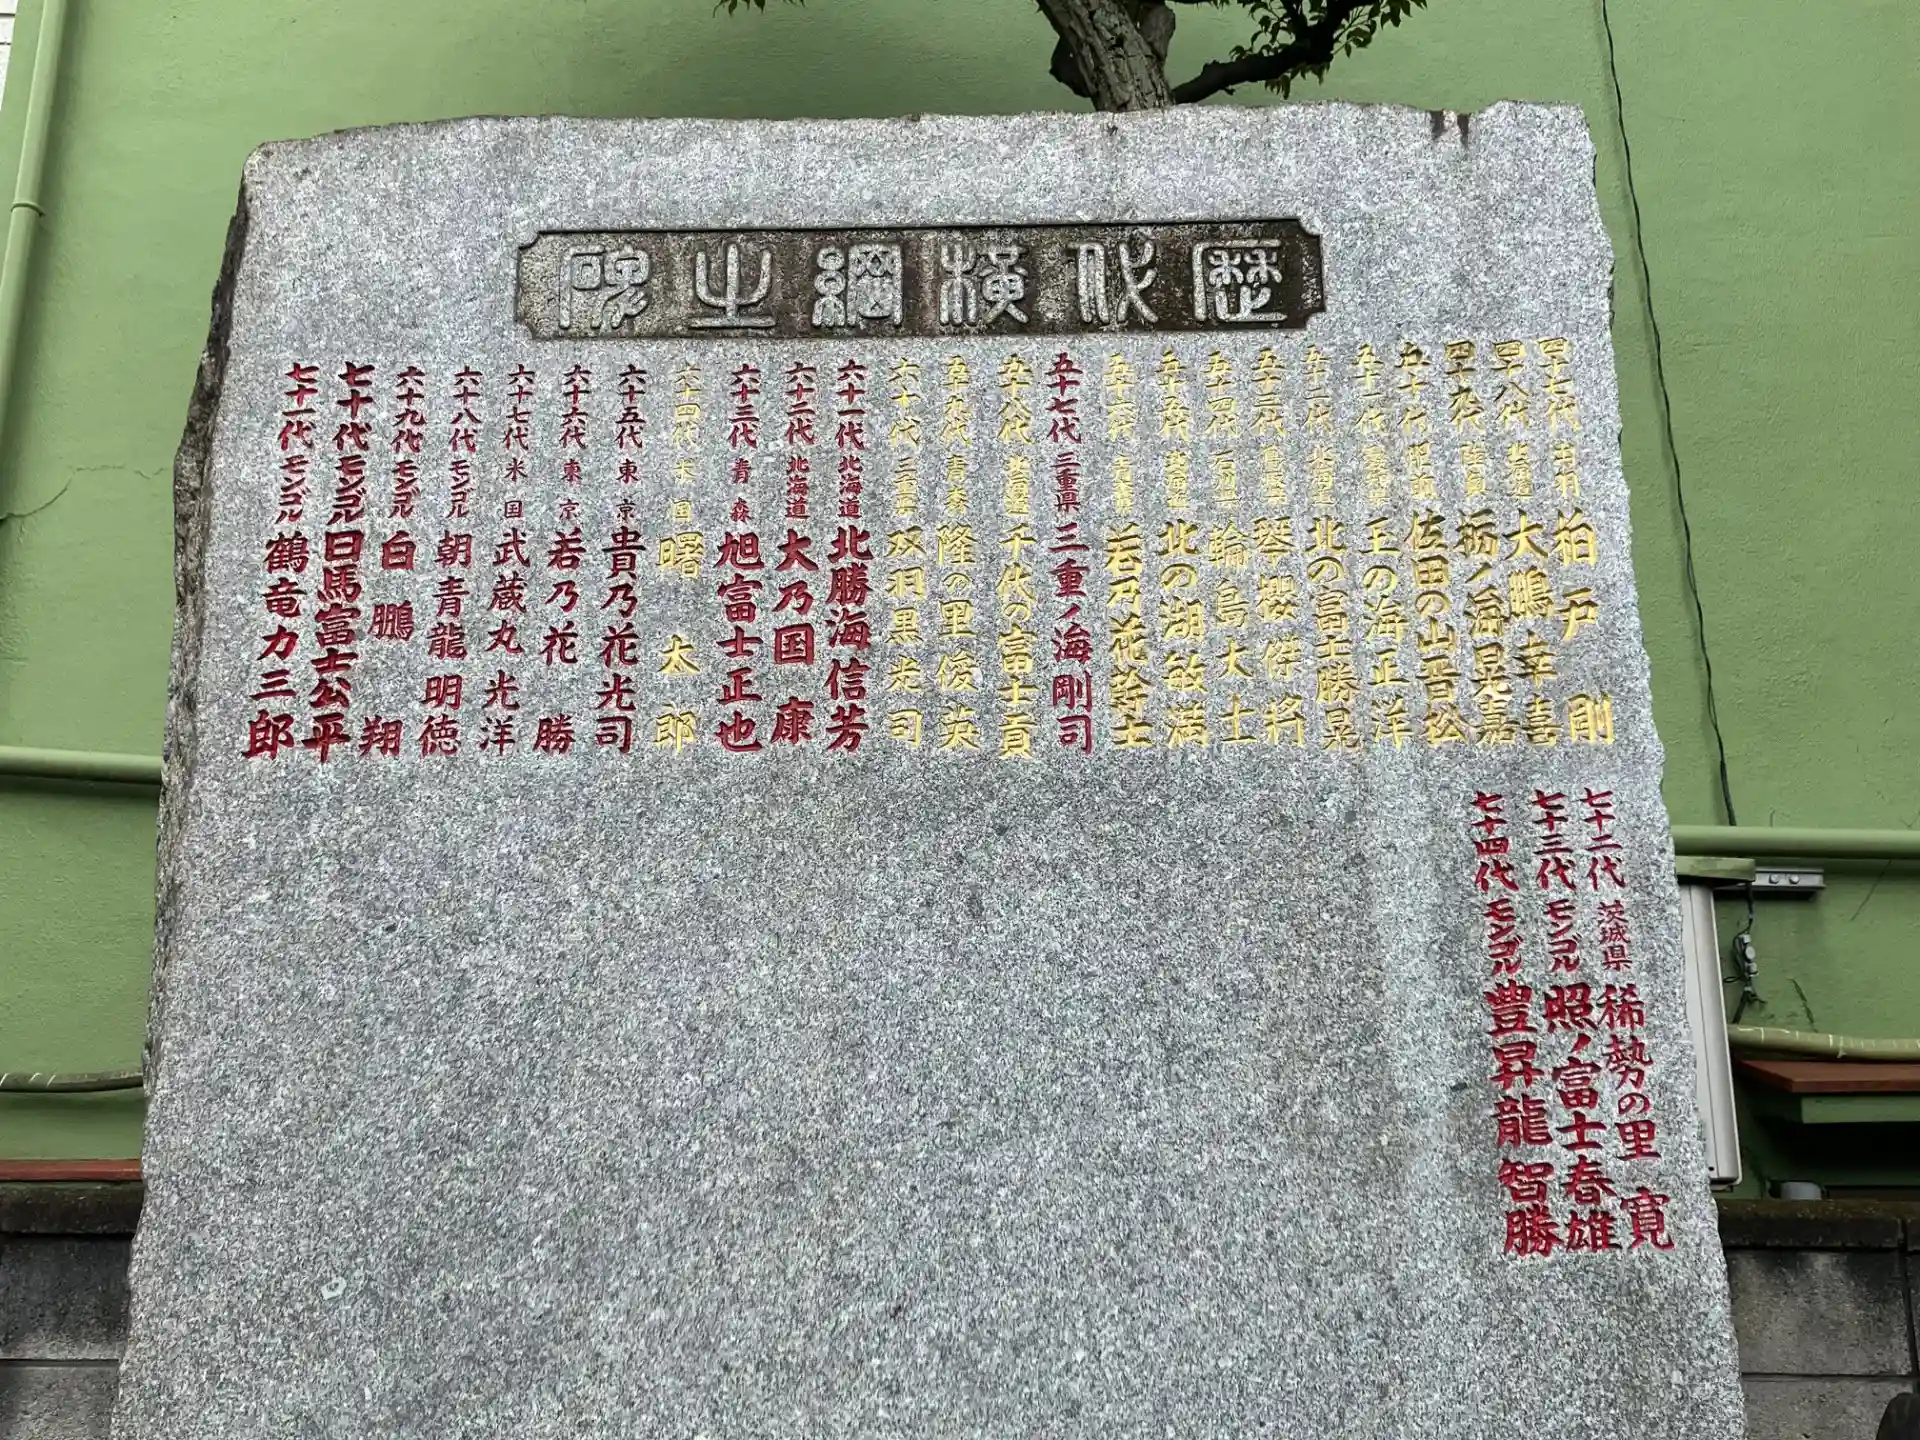 歴代横綱之碑
四十七代 出羽 柏戸剛
四十八代 北海道 大鵬幸喜
四十九代 陸奥 栃ノ海晃嘉
五十代 肥前 佐田の山晋松
五十一代 愛知県 玉の海正洋
五十二代 北海道 北の富士勝晃
五十三代 鳥取県 琴櫻傑將
五十四代 石川県 輪島大士
五十五代 北海道 北の湖敏満
五十六代 青森県 若乃花幹士
五十七代 三重県 三重ノ海剛司
五十八代 北海道 千代の富士貢
五十九代 青森 隆の里俊英
六十代 三重県 双羽黒光司
六十一代 北海道 北勝海信芳
六十二代 北海道 大乃国康
六十三代 青森 旭富士正也
六十四代 米国 曙太郎
六十五代 東京 貴乃花光司
六十六代 東京 若乃花勝
六十七代 米国 武蔵丸光洋
六十八代 モンゴル 朝青龍明徳
六十九代 モンゴル 白鵬翔
七十代 モンゴル 日馬富士公平
七十一代 モンゴル 鶴竜力三郎
七十二代 茨城県 稀勢の里寛
七十三代 モンゴル 照ノ富士春雄
七十四代 モンゴル 豊昇龍智勝